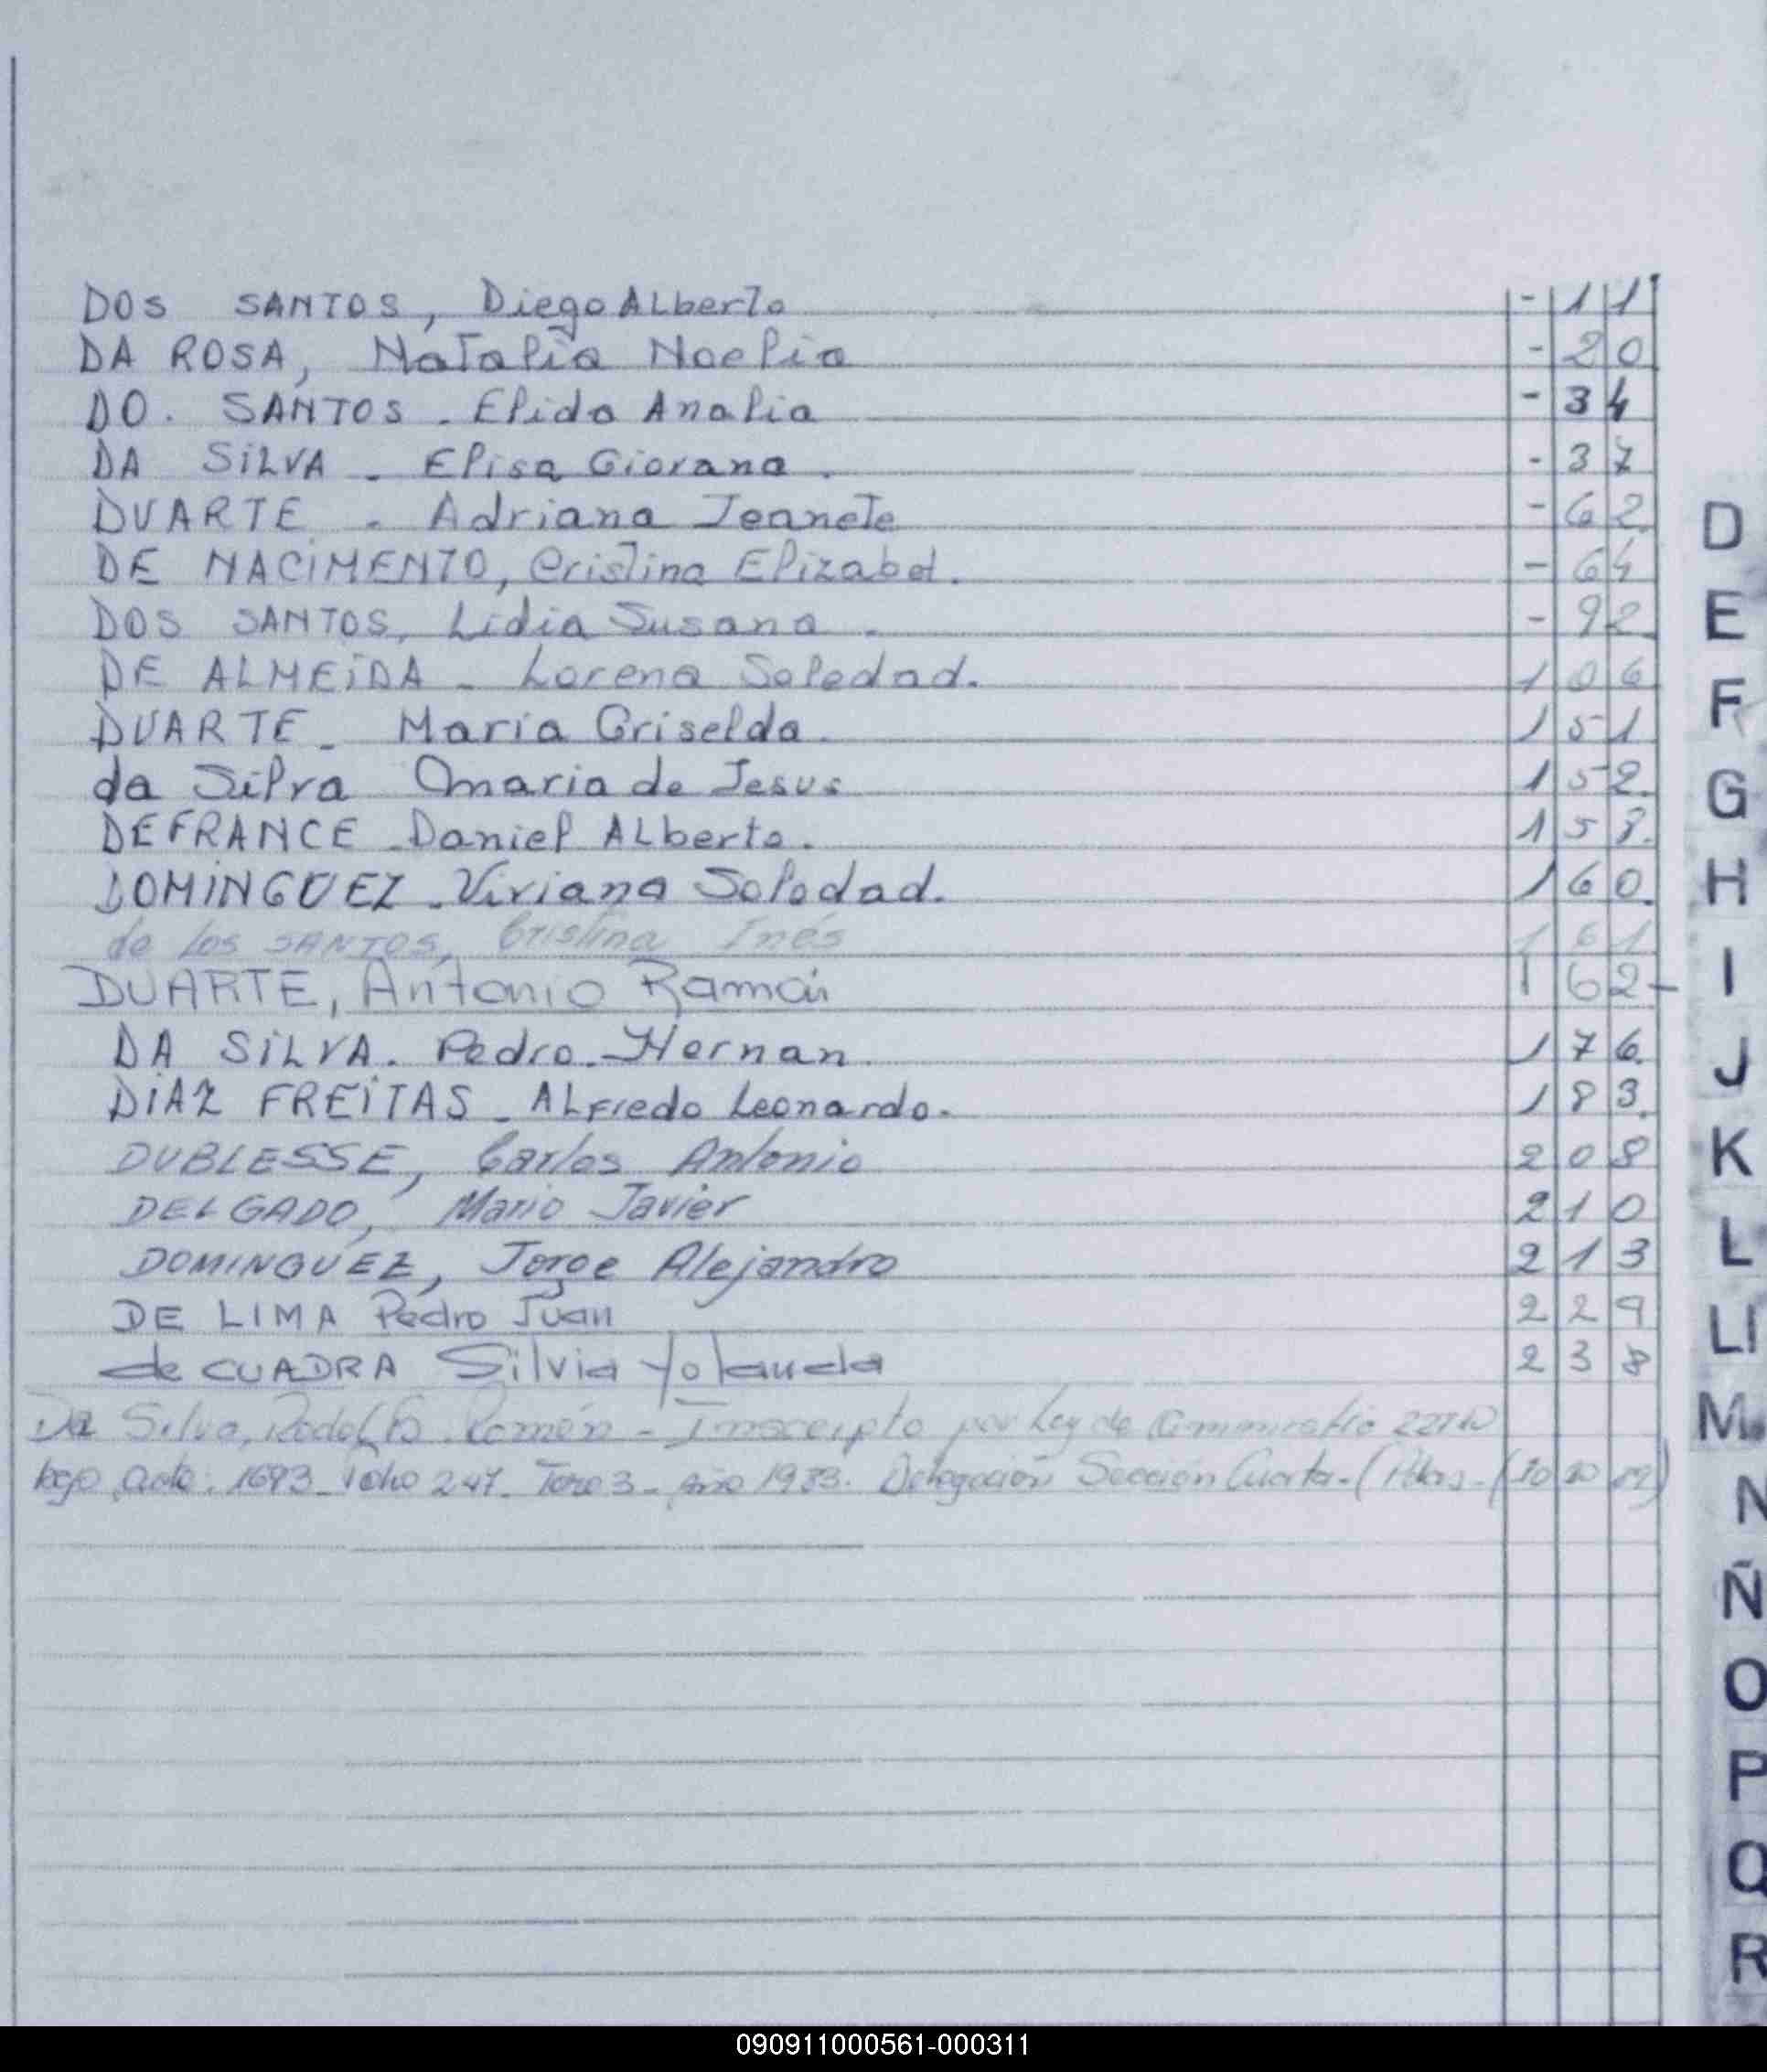 DOS SANTOS, Diego ALberto - 1 1
DA ROSA, Natalia Noelia - 2 0
DO. SANTOS - Elida Analia - 3 4
DA SiLVA - Elisa Giovana. - 3 7
DUARTE - Adriana Jeanete - 6 2
DE NACiMENTO, Cristina Elizabet. - 6 4
DOS SANTOS, Lidia Susana. - 9 2
DE ALMEiDA - Lorena Soledad. 1 0 6
DUARTE - Maria Griselda. 1 5 1
da Silva Omaria de Jesus 1 5 2
DEFRANCE - Daniel ALberto. 1 5 8
DOMiNGUEZ - Viviana Soledad. 1 6 0
de los SANTOS, Cristina Inés 1 6 1
DUARTE, Antonio Ramón 1 6 2
DA SiLVA. Pedro Hernan. 1 7 6
DiAZ FREiTAS - ALfredo Leonardo. 1 8 3
DUBLESSE, Carlos Antonio 2 0 8
DELGADO, Mario Javier 2 1 0
DOMINGUEZ, Jorge Alejandro 2 1 3
DE LIMA Pedro Juan 2 2 9
de CUADRA Silvia Yolanda 2 3 8
Da Silva, Rodolfo Román - Inscripto por Ley de
bajo acta: 1693 - Folio 247 - Tomo 3 - Año 1983. Delegación Sección Cuarta - (
D
E
F
G
H
I
J
K
L
Ll
M
N
Ñ
O
P
Q
R
090911000561-000311